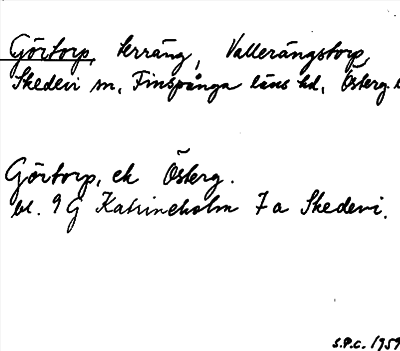 Görtorp, terräng, Vallerängstorp,
Skedevi sn, Finspånga läns hd, Österg.
Görtorp, ek Österg.
bl. 9 G Katrineholm 7 a Skedevi.
S.P.C. 1959